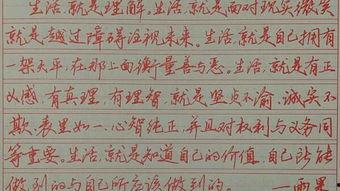 生活,就是理解。生活,就是面对现实微笑
就是越过障碍注视未来。生活,就是自己拥有
一架天平,在那上面衡量善与恶。生活,就是有正
义感,有真理,有理智,就是坚贞不渝,诚实不
欺,表里如一,心智纯正,并且对权利与义务同
等重要。生活,就是知道自己的价值,自己所能
做到的与自己所应该做到的。——雨果